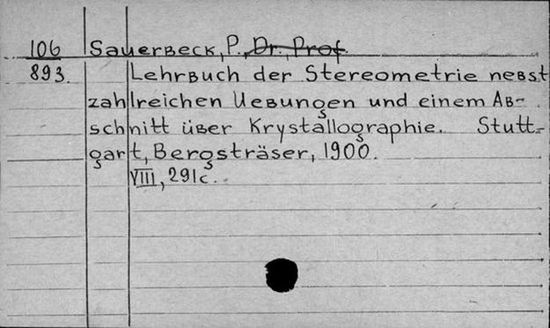 106 Sauerbeck, P., Dr., Prof.
893. Lehrbuch der Stereometrie nebst
zahlreichen Uebungen und einem Ab-
schnitt über Krystallographie. Stutt-
gart, Bergsträser, 1900.
VIII, 291c.